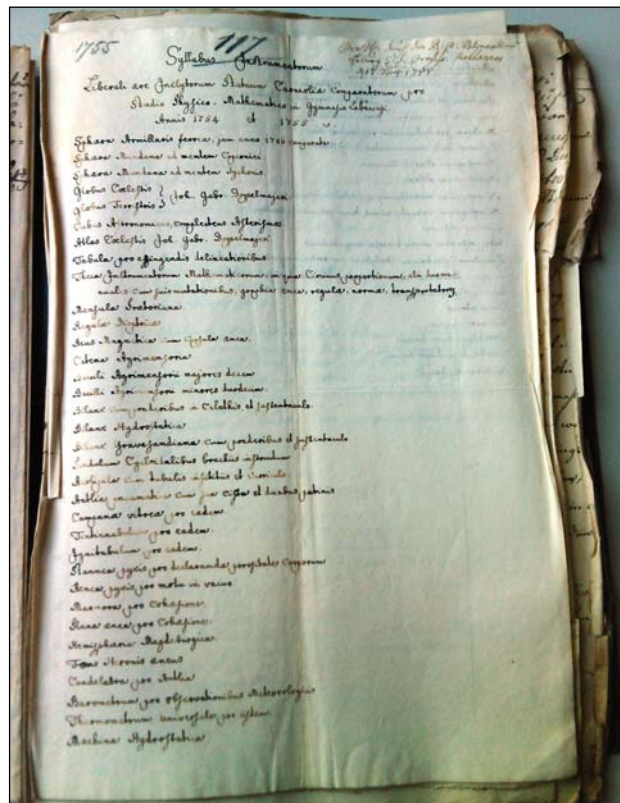 1755
117
Syllabus Instrumentorum
Liberali aere Inclytorum Statuum Carnioliae Comparatorum pro
Studio Physico-Mathematico in Gymnasio Labacensi
Annis 1754 et 1755
Sphaera Armillaris ferrea, jam anno 1706 comparata
Sphaera Mundana ad mentem Copernici
Sphaera Mundana ad mentem Tychonis
Globus Coelestis } Joh. Gabr. Doppelmayer
Globus Terrestris }
Cubus Astronomicus, complectens Asterismos
Atlas Coelestis Joh. Gabr. Doppelmayer
Tabula pro effingendis delineationibus
Theca Instrumentorum Mathematicorum, in qua Circinus proportionum, alii
cum suis mutationibus, graphia aenea, regula, norma, transportatorium
Mensula Praetoriana
Regula Dioptrica
Acus Magnetica cum Capsula aenea
Catena Agrimensoria
Baculi Agrimensorii majores decem
Baculi Agrimensorii minores duodecim
Bilanx cum ponderibus et sustentaculo
Bilanx Hydrostatica
Bilanx Gravesendiana cum ponderibus et sustentaculo
Pendulum Cycloidalibus brachiis instructum
Aeolipila cum tubulis et curriculo
Antlia pneumatica cum sua Cista et duabus patinis
Campana vitrea pro eadem
Tintinnabulum pro eadem
Ignitabulum pro eadem
Stannea pyxis pro declaranda porositate Corporum
Aenea pyxis pro motu in vacuo
Marmora pro Cohaesione
Plana aenea pro Cohaesione
Hemisphaeria Magdeburgica
Fons Heronis aeneus
Candelabra pro Antlia
Barometrum pro observationibus Meteorologicis
Thermometrum universale pro iisdem
Machina Hydrostatica